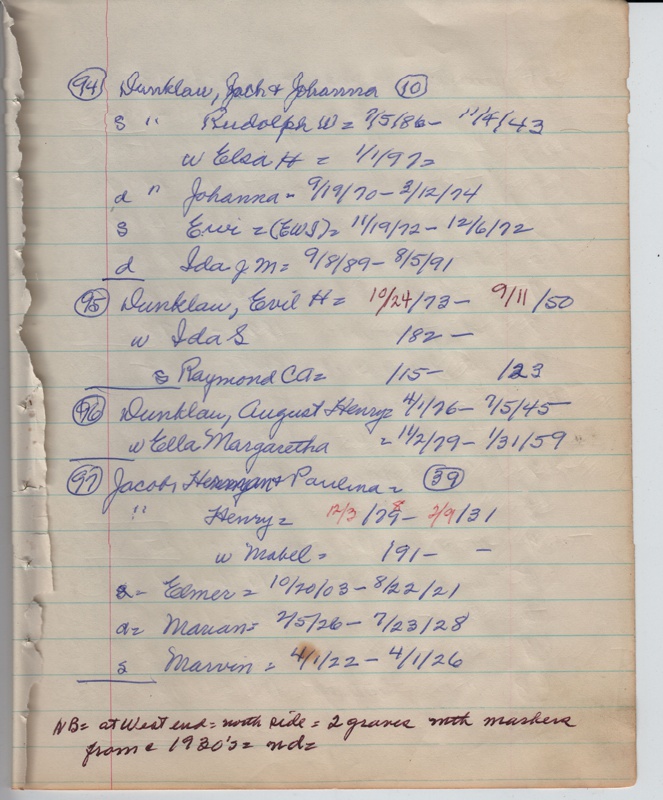 (94) Dunklau, Joch & Johanna (10)
s " Rudolph W = 7/5/86 - 11/4/43
w Elsa H = 1/1/97 =
d " Johanna - 9/19/70 - 3/12/74
s = (EWS) = 11/19/72 - 12/6/72
d Ida J M = 9/8/89 - 8/5/91
(95) Dunklau, Evil H = 10/24/73 - 9/11/50
w Ida S /82 -
s Raymond CA = /15 - /23
(96) Dunklau, August Henry = 4/1/76 - 7/5/45
w Ella Margaretha = 11/2/79 - 1/31/59
(97) Jacobs Herman & Paulina = (39)
" Henry = 12/3/79 - 2/9/31
w Mabel = /91 - -
s - Elmer = 10/20/03 - 8/22/21
d = Marian = 2/5/26 - 7/23/28
s Marvin = 4/1/22 - 4/1/26
NB = at West end = north side = 2 graves with markers
from c 1930's = nd =